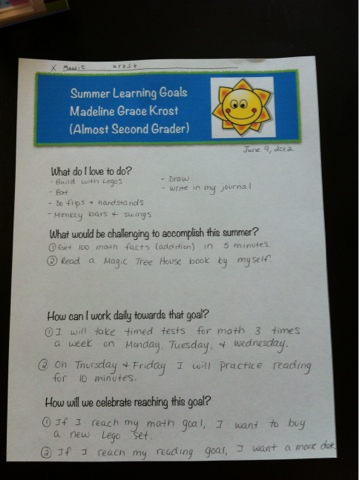 X
Summer Learning Goals
Madeline Grace Krost
(Almost Second Grader)
June 9, 2012
What do I love to do?
- Build with Legos
- Draw
- Eat
- Write in my journal
- Do flips & handstands
- Monkey bars & swings
What would be challenging to accomplish this summer?
① Get 100 math facts (addition) in 5 minutes.
② Read a Magic Tree House book by myself.
How can I work daily towards that goal?
① I will take timed tests for math 3 times
a week on Monday, Tuesday, & Wednesday.
② On Thursday & Friday I will practice reading
for 10 minutes.
How will we celebrate reaching this goal?
① If I reach my math goal, I want to buy
a new Lego set.
② If I reach my reading goal, I want a